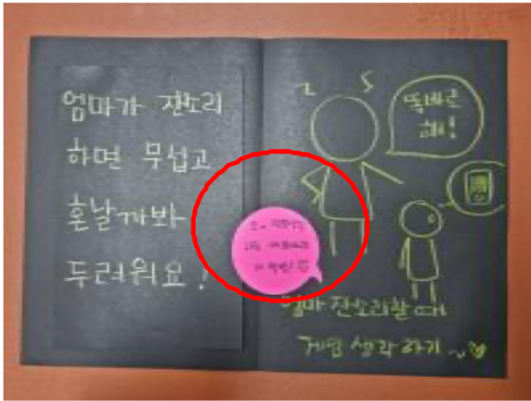 엄마가 잔소리
하면 무섭고
혼날까봐
두려워요!
똑바로
해!
엄마 잔소리할 때
게임 생각하기